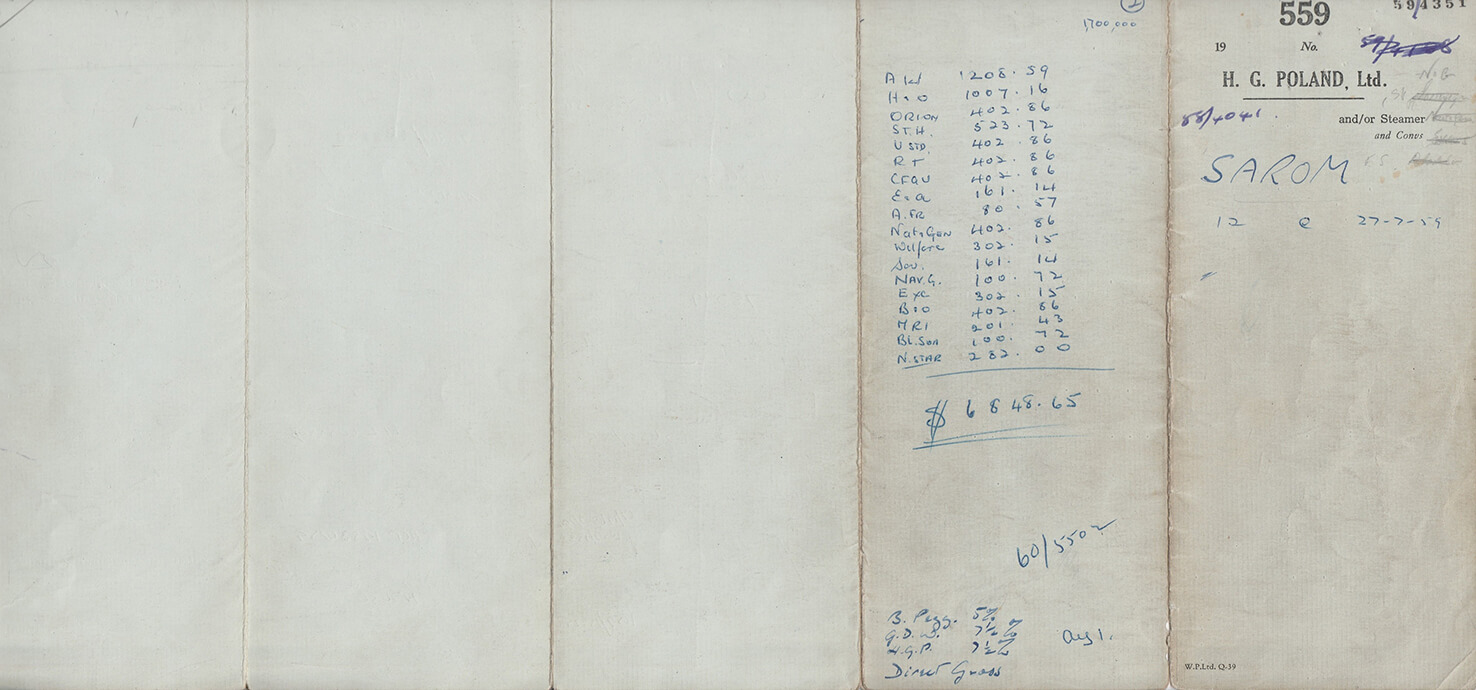 1
1,700,000
A Ld 1208.59
H & O 1007.16
ORION 402.86
ST.H. 523.72
U STD. 402.86
R T 402.86
CFGU 402.86
E & a 161.14
A.FR 80.57
Nat & Gen 402.86
Welfare 302.15
Sov. 161.14
NAV.G. 100.72
Exc 302.15
B & O 402.86
MRI 201.43
BL.Sea 100.72
N.STAR 282.00
$ 6848.65
60/5502
B. Pegg. 5%
G.D.W. 7½%
H.G.P. 7½%
Aug 1.
Direct Gross
559
59/4351
19 No.
H. G. POLAND, Ltd.
58/4041.
and/or Steamer
and Convs
SAROM
12 @ 27-7-59
W.P.Ltd. Q-39